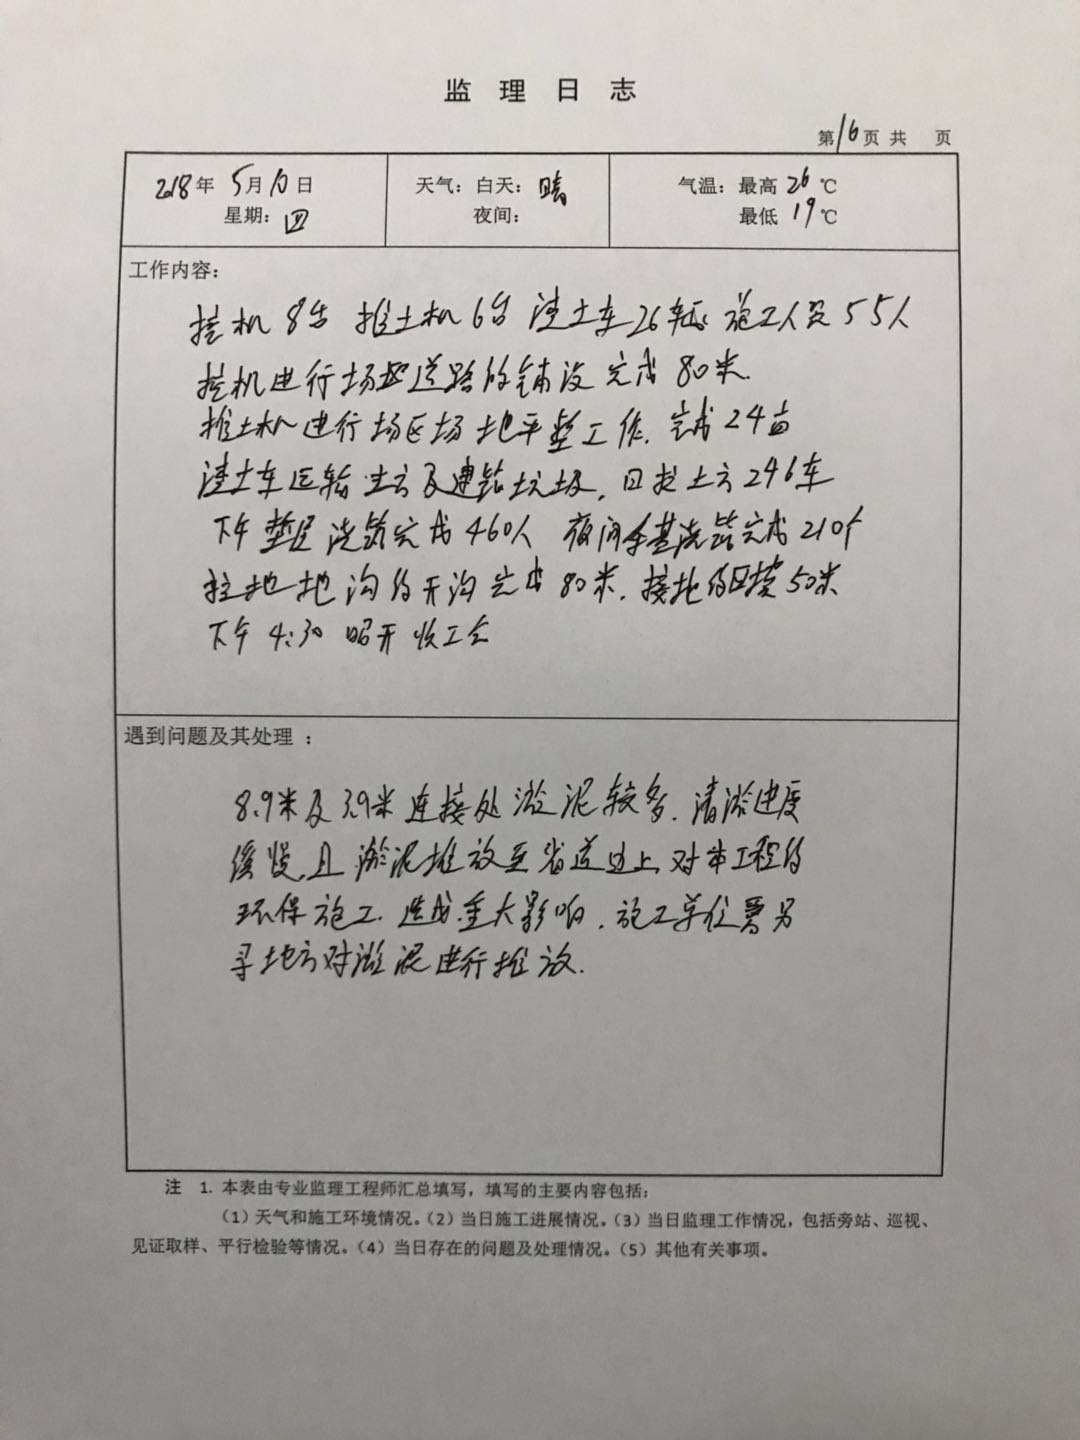 监理日志
第16页 共 页
2018年5月10日
星期：四
天气：白天：晴
夜间：
气温：最高 26 ℃
最低 19 ℃
工作内容：
挖机8台 推土机6台 渣土车26辆 施工人员55人
挖机进行场区道路的铺设 完成80米.
推土机进行场区场地平整工作. 完成24亩
渣土车运输土方及建筑垃圾, 日挖土方246车
下午垫层浇筑完成460 夜间 基浇筑完成210个
地沟的开沟完成80米. 接地的回填50米
下午4:30 召开收工会
遇到问题及其处理 ：
8.9米及3.9米连接处淤泥较多. 清淤进度
缓慢, 且淤泥堆放至省道边上, 对本工程的
环保施工. 造成重大影响. 施工单位需另
寻地方对淤泥进行堆放.
注 1. 本表由专业监理工程师汇总填写，填写的主要内容包括：
（1）天气和施工环境情况。（2）当日施工进展情况。（3）当日监理工作情况，包括旁站、巡视、
见证取样、平行检验等情况。（4）当日存在的问题及处理情况。（5）其他有关事项。